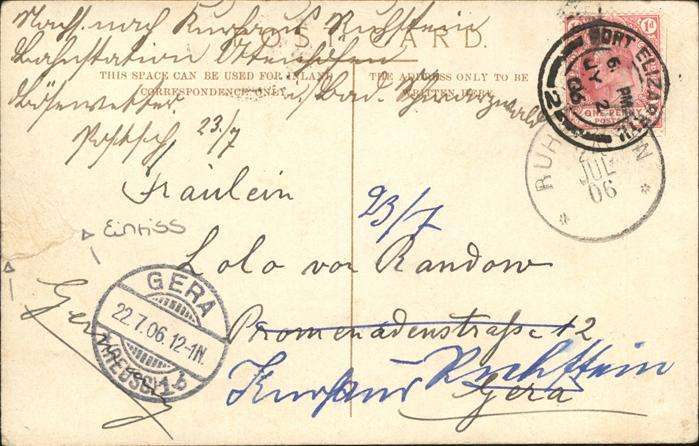 Nach. nach Kurhaus Ruhstein
POST CARD.
Bahnstation Ottenhöfen
THIS SPACE CAN BE USED FOR INLAND
CORRESPONDENCE ONLY.
THE ADDRESS ONLY TO BE
WRITTEN HERE.
i/Bad. Schwarzwald
23/7
Fräulein
23/7
Lolo von Randow
Promenadenstraße 12
Kurhaus Ruhstein
Gera
Einriss
Germany
GERA
22.7.06.12-1N.
(REUSS) 1b
PORT ELIZABETH
PM
6
JY 2
06
2
ONE PENNY
1d
RUH IN
JUL
06